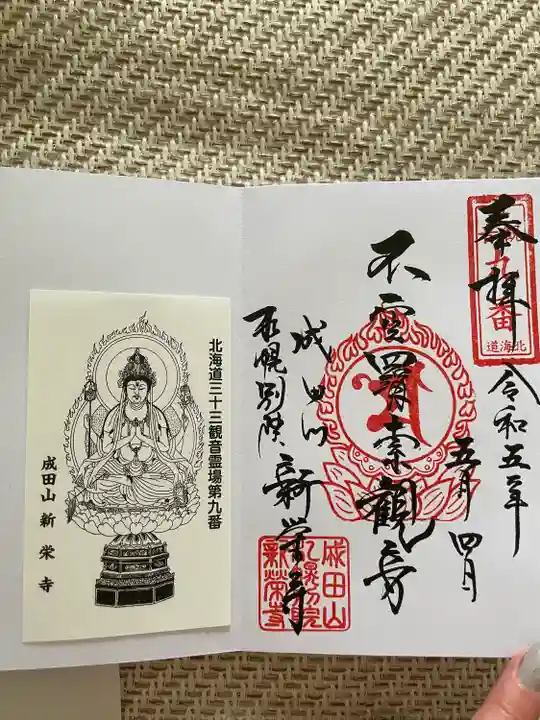 奉拝
九番
北海道
令和五年
五月四日
不空羂索観音
成田山
札幌別院
新栄寺
成田山
札幌別院
新榮寺
北海道三十三観音霊場第九番
成田山新栄寺